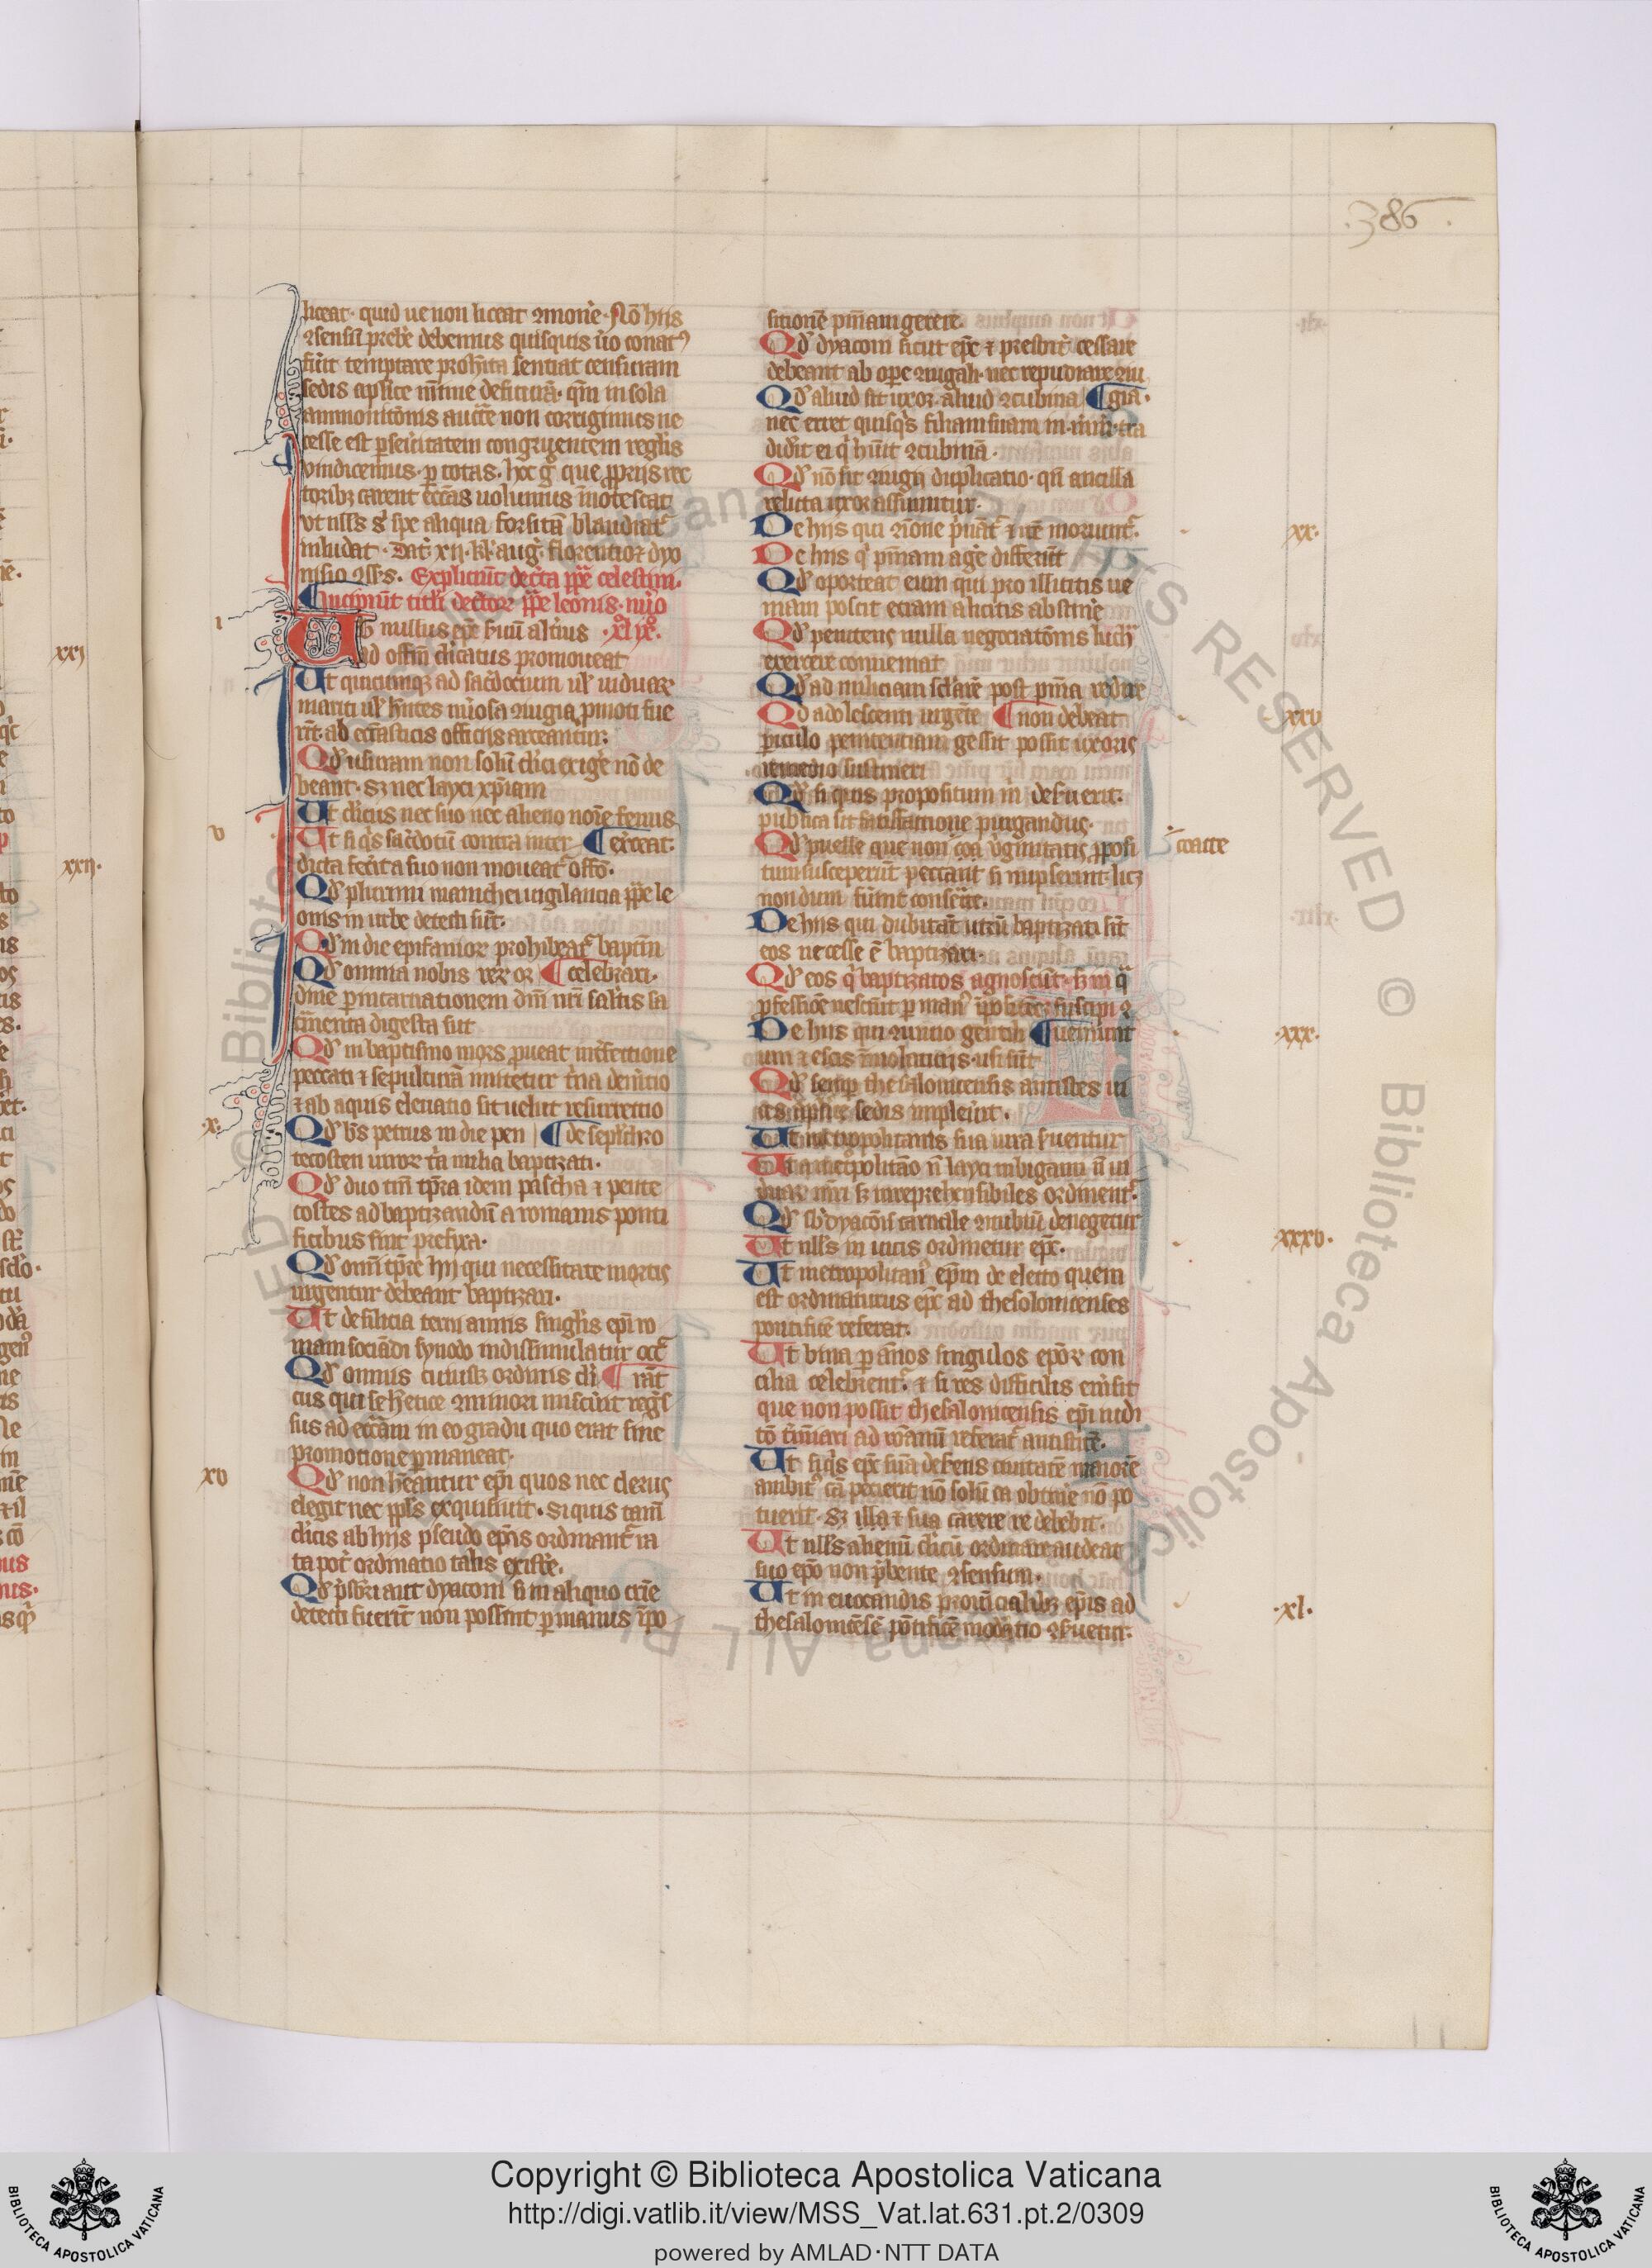 .386.
liceat quid ue non liceat ꝯmonẽ. Nõ hiis
ꝯsensũ prebẽ debemus quisquis ũo conatꝰ
fũit temptare prohĩta sentiat censuram
sedis apl̃ice mĩme defuturã. qm̃ in sola
ammonitõnis auctẽ non corrigimus ne
cesse est ꝑ seũitatem congruentem regl̃is
vindicemus. ꝑ totas. hec g̃ que ꝓpriis rec
toribꝫ carent ecc̃as uolumus ĩnotescat
vt nll̃s s̃ spe aliqua forsitã blandiat̃
inludat. Dat̃ xii. kl̃ aug̃. florentio ꝛ dyo
nisio ꝯss̃s. Explicĩut dec̃ta pp̃e celestini.
Incipiũt titl̃i dec̃torꝝ pp̃e leonis. nũo
i
Ut nullus ep̃c ẜuũ alt̃ius .xl ix.
ad offm̃ cl̃icatus promoueat
Ut quicũqꝫ ad sac̃docium ul̃ uiduarꝝ
mariti ul̃ hñtes nũosa ꝯiugia ꝓmoti fue
rĩt ab ecc̃iasticis officiis arceantur.
Qd̃ usuram non solũ cl̃ici exigẽ nõ de
beant. sꝫ nec layci xp̃iani
Ut cl̃icus nec suo nec alieno noĩe fenus
v
Ut si q̃s sac̃dotũ contra inter ¶ ex̃ceat.
dicta fec̃it a suo non moueat̃ offõ.
Qd̃ plurimi manichei uigilancia pp̃e le
onis in urbe detecti sũt.
Qd̃ in die epifaniorꝝ prohibeat̃ baptm̃
Qd̃ omnia nobis ¶ celebrari.
diuẽ ꝑ incarnationem dm̃ nr̃i salũtis sa
cm̃enta digesta sint
Qd̃ in baptismo mors ꝓueat int̃fectione
peccati ⁊ sepulturã imitetur t̃na dem̃tio
⁊ ab aquis eleuatio sit uelut resurrectio
.x.
Qd̃ bt̃s petrus in die pen ¶ de sepulchro
tecosten uirorꝝ t̃a milia baptizati.
Qd̃ duo tm̃ tp̃ra idem pascha ⁊ pente
costes ad baptizandũ a romanis ponti
ficibus sint prefixa.
Qd̃ omĩ tp̃re hii qui necessitate mortis
urgentur debeant baptizari.
Ut de sicilia terni annis singl̃is ep̃i ro
mam sociãdi synodo indissimulatur occr̃
Qd̃ omnis cuiusꝫ ordinis cl̃i ¶ rãt
cus qui se hetice ꝯmunioni miscũit regs̃
sus ad ecc̃am in eo gradu quo erat sine
promotione ꝑmaneat.
xv
Qd̃ non hẽantur ep̃i quos nec clerus
elegit nec ppl̃s exquisiuit. si quis tam̃
cl̃icis ab hiis pseudo ep̃is ordinant̃ ra
ta pot̃ ordinatio talis existẽ.
Qd̃ p̃sbr̃i aut dyaconi si in aliquo cr̃ie
detecti fuerĩt non possint ꝑ manus ĩpo
sitionẽ pm̃am gerere.
Qd̃ dyaconi sicut ep̃c ⁊ presbit̃ cessare
debeant ab oꝑe ꝯiugali. nec repudiare ꝯiu
Qd̃ aliud sit uxor aliud ꝯcubina ¶ gia.
nec erret quisq̃s filiam suam in mr̃iꝫ tra
didit ei q̃ hũit ꝯcubinã.
Qd̃ nõ sit ꝯiugii duplicatio. qñ ancilla
relicta uxor assumitur.
xx.
De hiis qui r̃ione p̃uãt̃ ⁊ itẽ moriunt̃.
De hiis q̃ pm̃am agẽ differũt
Qd̃ oporteat eum qui pro illicitis ue
niam poscit eciam a licitis abstinẽ
Qd̃ penitens nulla negociatõnis lucr̃
exercere conueniat
Qd̃ ad miliciam scl̃arẽ post pm̃a redire
xxv
Qd adolescenti urgẽte ¶ non debeat
ꝑiculo penitentiam gessit possit uxoris
remedio sustineri
Qd̃ si quis propositum m deseruerit.
publica sit satisfactione purgandus.
Qd̃ puelle que non ũginitatis ꝓposi coacte
tum susceperũt peccãnt si nupserint. licꝫ
nondum fũint consec̃te.
De hiis qui dubitãt utrũ baptizati sĩt
eos necesse ẽ baptizari.
Qd̃ eos q̃ baptizatos agnoscũt. ẜ in q̃
ꝓfessiõe nesciũt ꝑ manꝰ ĩpoĩtẽ suscipi ꝯ
xxx.
De hiis qui ꝯuiuio gentili ¶ uenĩunt
um ⁊ escis ĩmolaticiis usi sũt
Qd̃ semꝑ thesalonicensis antistes ui
ces apl̃ice sedis impleũit.
Ut metropolitanis sua iura ẜuentur
Ut a met̃politão ñ layci ñ bigami ñ ui
duarꝝ mr̃i sꝫ irreprehensibiles ordinent̃.
Qd̃ sb̃dyacõis carnale ꝯnubiũ denegetur
xxxv.
Ut nll̃s in uicis ordinetur ep̃c.
Ut metropolitanꝰ ep̃m de electo quem
est ordinaturus ep̃c ad thesolonicenses
pontificẽ referat.
Ut bina ꝑ ãnos singulos ep̃orꝝ con
cilia celebrent̃. ⁊ si res difficilis em̃sit
que non possit thesalonicensis ep̃i iudi
tõ t̃m̃ari ad roãnũ referat̃ antistitẽ.
Ut si q̃s ep̃c suã deserens ciuitatẽ maiorẽ
ambit̃ cã pecierit nõ solũ ea obtinẽ nõ po
tuerit. sꝫ illa ⁊ sua carere debebit.
Ut nll̃s alienũ cl̃icũ ordinare audeat
suo ep̃o non p̃bente ꝯsensum.
xl.
Ut in euocandis prouĩcialibꝫ ep̃is ad
thesalonicẽsẽ põtificẽ mod̃atio ꝯẜuetur.
Copyright © Biblioteca Apostolica Vaticana
http://digi.vatlib.it/view/MSS_Vat.lat.631.pt.2/0309
powered by AMLAD·NTT DATA
BIBLIOTECA APOSTOLICA VATICANA
BIBLIOTECA APOSTOLICA VATICANA